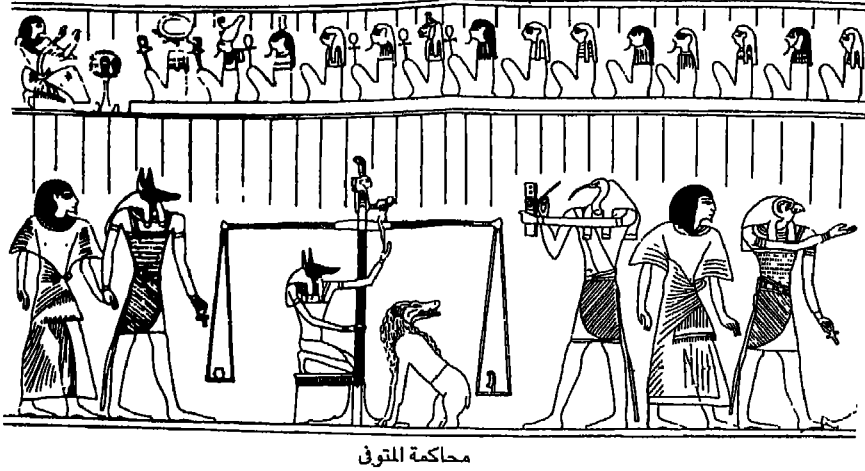 محاكمة المتوفى